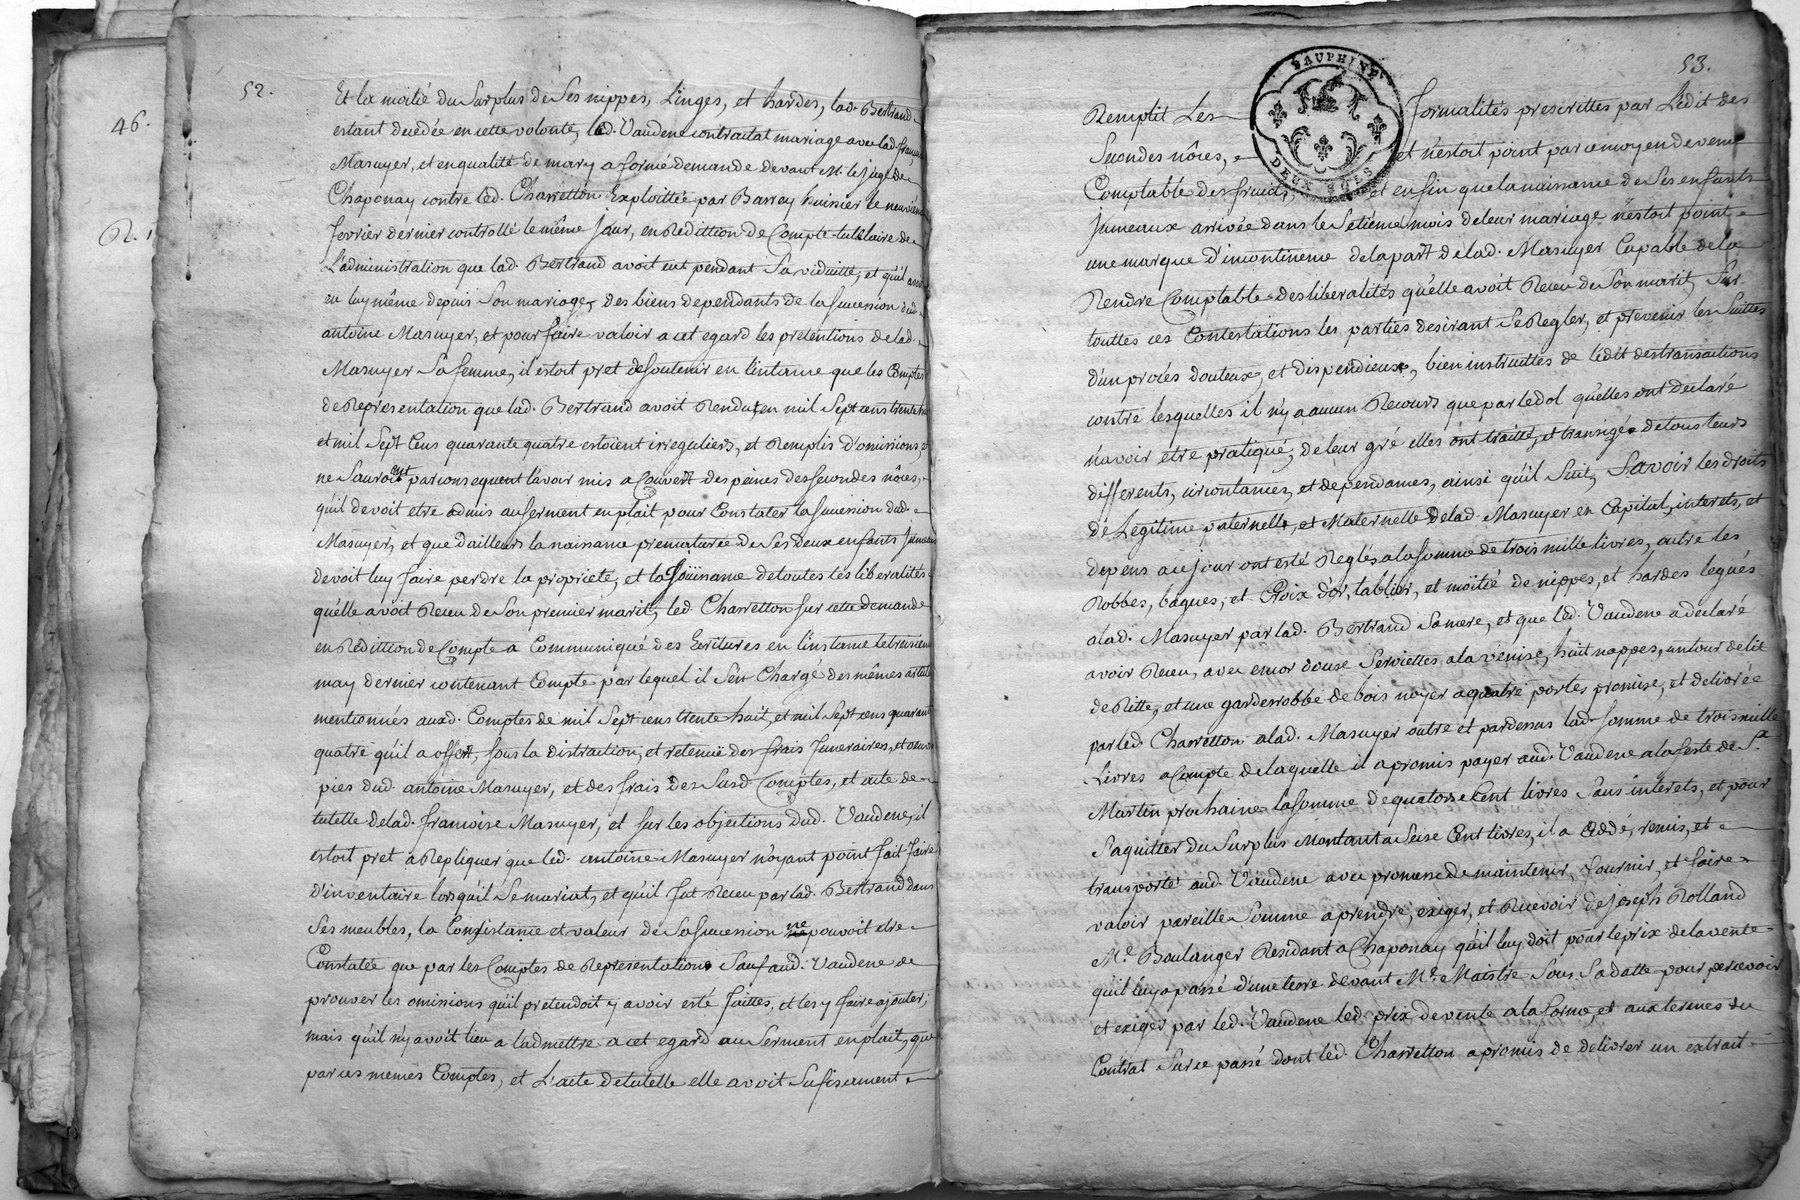 46.
R. 1
52.
Et la moitié du Surplus de Ses nippes, Linges, et hardes, lad. Bertrand
estant decedée en cette volonté, led. Vaudene contractat mariage avec lad. francoise
Masuyer, et en qualité de mary a formé demande devant M. le juge de
Chaponay contre led. Charretton Exploittée par Barray huissier le neuvieme
fevrier dernier controllé le même jour, en Reddittion de Compte tutelaire de
L'administration que lad. Bertrand avoit eut pendant Sa viduitté, et qu'il avoit
eu luy même depuis Son mariage, des biens dependants de la Succession dud.
antoine Masuyer, et pour faire valoir a cet egard les pretentions de lad.
Masuyer Sa femme, il estoit pret de Soutenir en l'instance que les Comptes
de Representation que lad. Bertrand avoit Rendu en mil Sept cens trente huit
et mil Sept Cens quarante quatre estoient irreguliers, et Remplis d'omissions, et
ne Sauroient par consequent l'avoir mis a Couvert des peines des Secondes nôces,
qu'il devoit etre admis au Serment en plait pour Constater la Succession dud.
Masuyer, et que d'ailleurs la naissance prematurée de Ses deux enfants Jumeaux
devoit luy faire perdre la proprieté, et la Joüissance de toutes les liberalités
qu'elle avoit Receu de Son premier marit, led. Charretton Sur cette demande
en Reddittion de Compte a Communiqué des Ecritures en l'instance le troisieme
may dernier contenant Compte par lequel il S'en Chargé des mêmes articles
mentionnés auxd. Comptes de mil Sept cens trente huit, et mil Sept cens quarante
quatre qu'il a offert, Sous la distraction, et retenüe des frais funeraires, et
pies dud. antoine Masuyer, et des frais des Susd. Comptes, et acte de
tutelle de lad. francoise Masuyer, et Sur les objections dud. Vaudene, il
estoit pret a Repliquer que led. antoine Masuyer n'ayant point fait faire
d'inventaire lorsqu'il Se mariat, et qu'il fut Receu par lad. Bertrand dans
Ses meubles, la Consistance et valeur de Sa Succession ne pouvoit etre
Constatée que par les Comptes de Representations Sauf aud. Vaudene de
prouver les omissions qu'il pretendoit y avoir esté faittes, et les y faire ajouter,
mais qu'il n'y avoit lieu a l'admettre a cet egard au Serment en plait, que
par ces memes Comptes, et L'acte de tutelle elle avoit Sufisament
53.
DAUPHINÉ
DEUX SOLS
Remplit Les formalités prescrittes par L'edit des
Secondes nôces, et n'estoit point par ce moyen devenue
Comptable des fruids, et enfin que la naissance de Ses enfants
jumeaux arrivée dans le Setième mois de leur mariage n'estoit point
une marque d'incontinence de la part de lad. Masuyer Capable de la
Rendre Comptable des liberalités qu'elle avoit Receu de Son marit, Sur
touttes ces Contestations les parties desirant Se Regler, et prevenir les Suittes
d'un procés douteux, et dispendieux, bien instruittes de l'edit des transactions
contre lesquelles il n'y a aucun Recours que par le dol qu'elles ont declaré
n'avoir etre pratiqué, de leur gré elles ont traitté, et transigé de tous leurs
differents, circontances, et dependances, ainsi qu'il Suit, Savoir les droits
de Legitime paternelle, et Maternelle de lad. Masuyer en Capital, interets, et
depens a ce jour ont esté Reglés a la Somme de trois mille livres, outre les
Robbes, bagues, et Croix d'or, tablier, et moitié de nippes, et hardes legués
a lad. Masuyer par lad. Bertrand Sa mere, et que led. Vaudene a declaré
avoir Receu, avec encor douse Serviettes a la venise, huit nappes, un tour de lit
de Ritte, et une garderrobbe de bois noyer a quatre portes promise, et delivrée
par led. Charretton a lad. Masuyer outre et par dessus lad. Somme de trois mille
Livres a Compte de laquelle il a promis payer aud. Vaudene a la feste de St.
Martin prochaine la Somme de quatorse Cent livres Sans interets, et pour
S'aquitter du Surplus Montant a Seise Cent livres, il a Cedé, remis, et
transporté aud. Vaudene avec promesse de maintenir, fournir, et faire
valoir pareille Somme a prendre, exiger, et Recevoir de joseph Rolland
Me. Boulanger Residant a Chaponay qu'il luy doit pour le prix de la vente
qu'il luy a passé d'une terre devant Me. Maistre Sous Sa datte pour percevoir
et exiger par led. Vaudene led. prix de vente a la forme, et aux termes du
Contrat Sur ce passé dont led. Charretton a promis de delivrer un extrait